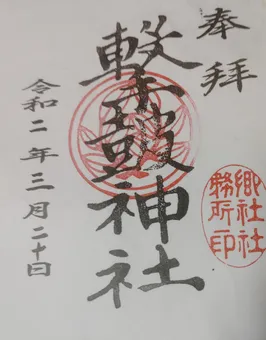 奉拝
撃鼓神社
令和二年三月二十日
郷社社
務所印